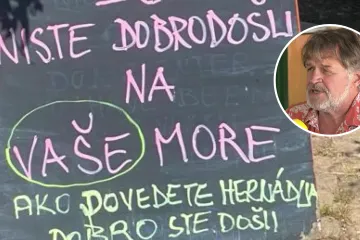 NISTE DOBRODOŠLI
NA
VAŠE MORE
AKO DOVEDETE HERNÁDIJA
DOBRO STE DOŠLI